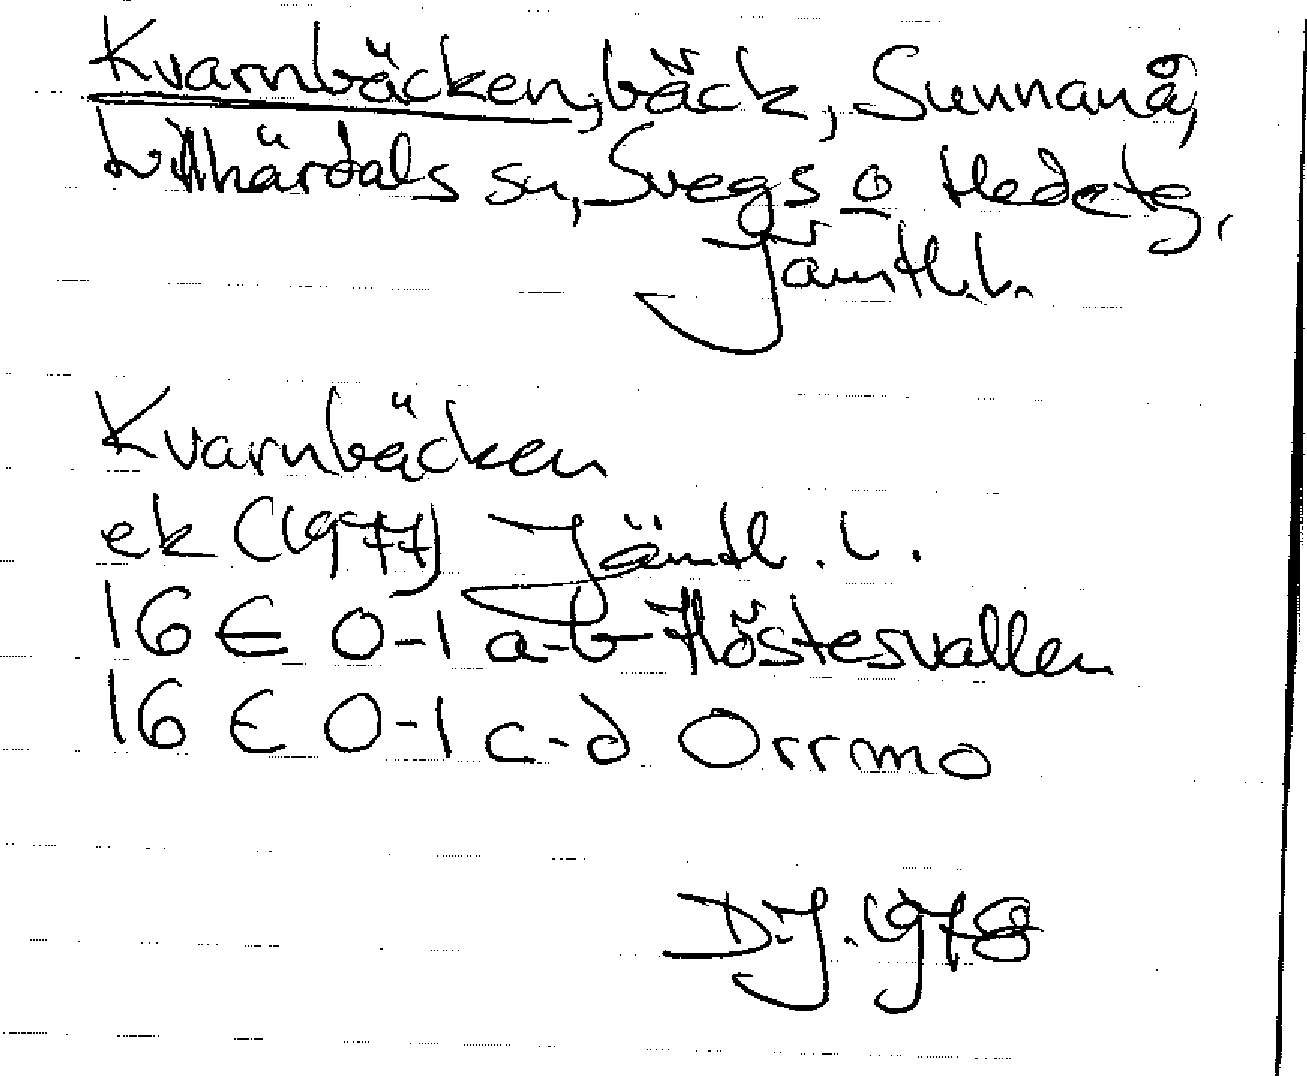 Kvarnbäcken, bäck, Sunnanå,
Lillhärdals sn, Svegs o Hedetg,
Jämtl.l.
Kvarnbäcken
ek (1977) Jämtl. l.
16 E 0-1 a-b Höstesvallen
16 E 0-1 c-d Orrmo
D.J. 1978